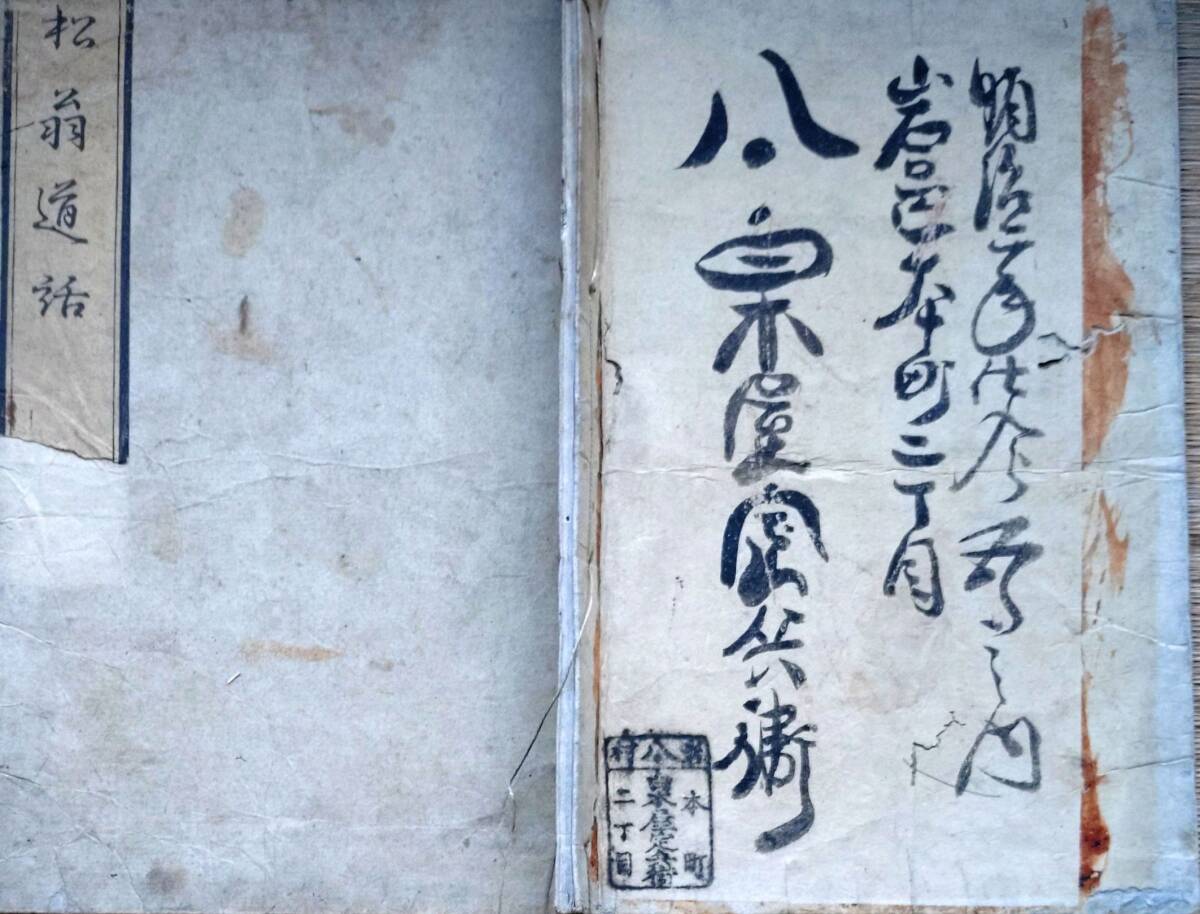 明治二年仕入之内
岩邑本町二丁目
八泉屋定兵衛
本町
八泉屋定兵衛
村二丁目
松翁道話